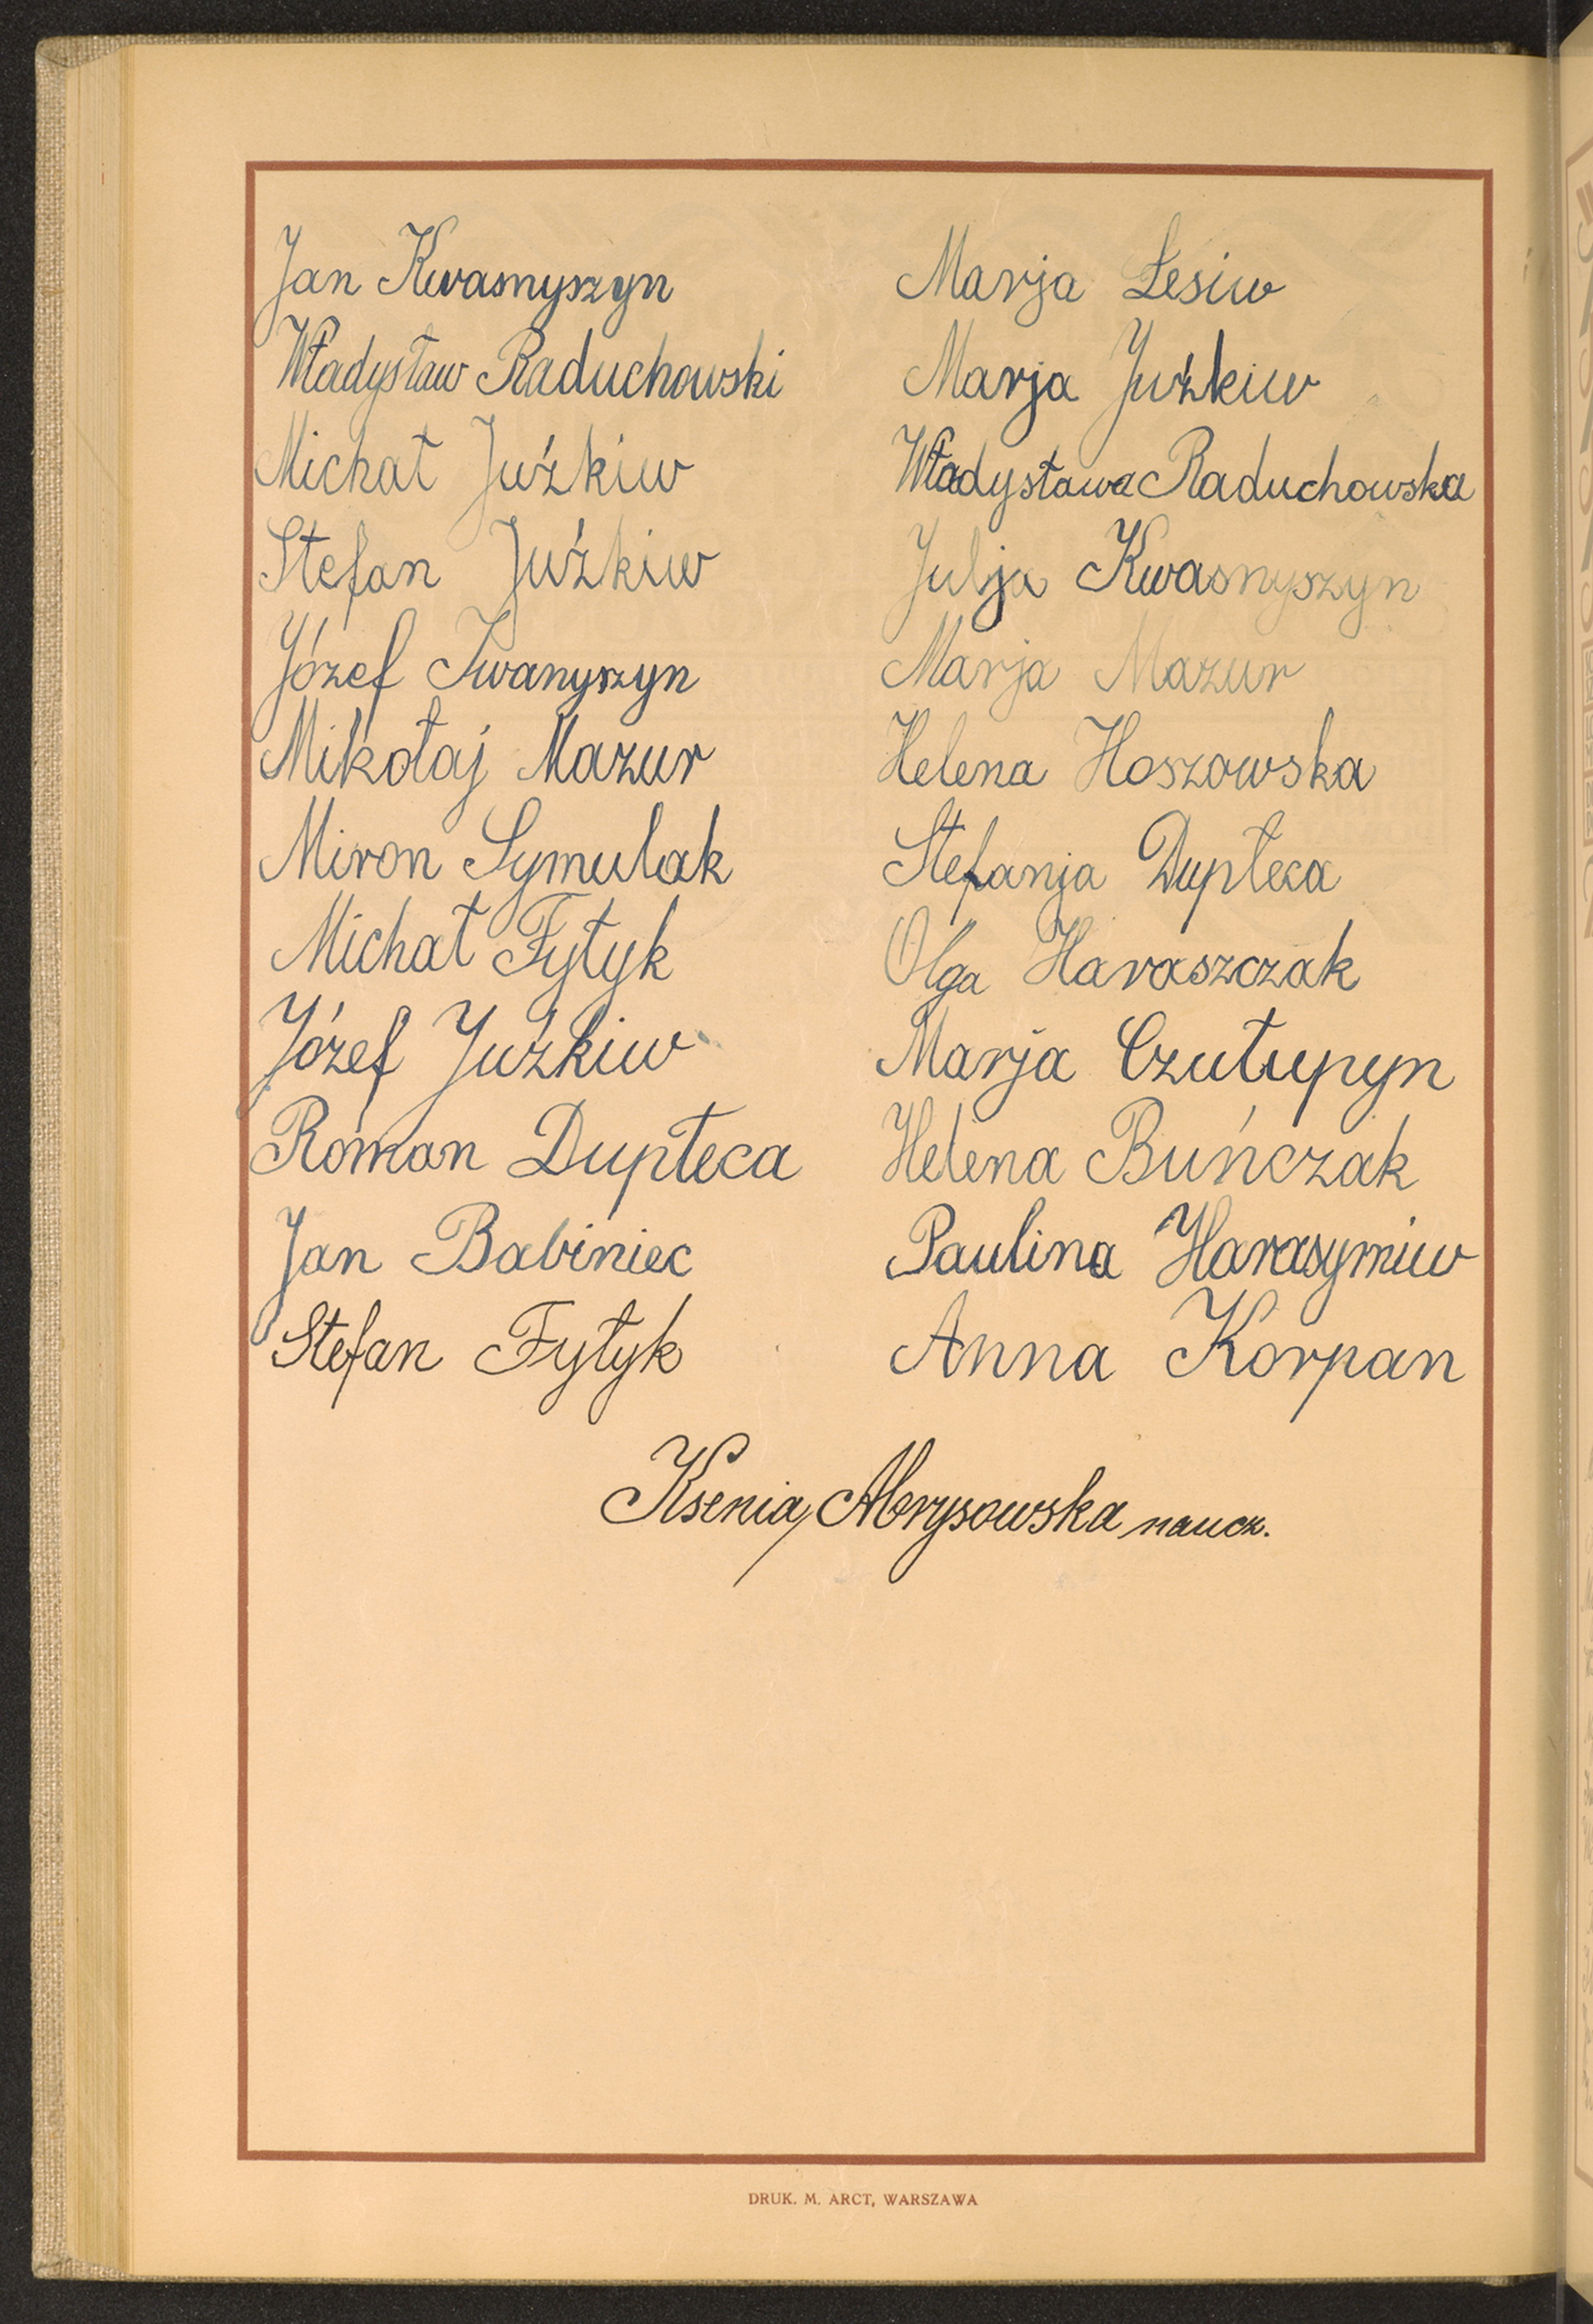 Jan Kwasnyszyn
Władysław Raduchowski
Michał Juźkiw
Stefan Juźkiw
Józef Iwanyszyn
Mikołaj Mazur
Miron Symulak
Michał Fytyk
Józef Juźkiw
Roman Dupłeca
Jan Babiniec
Stefan Fytyk
Marja Łesiw
Marja Juźkiw
Władysława Raduchowska
Julja Kwasnyszyn
Marja Mazur
Helena Hoszowska
Stefanja Dupłeca
Olga Haraszczak
Marja Czułupyn
Helena Buńczak
Paulina Harasymiw
Anna Korpan
Ksenia Abrysowska naucz.
DRUK. M. ARCT, WARSZAWA